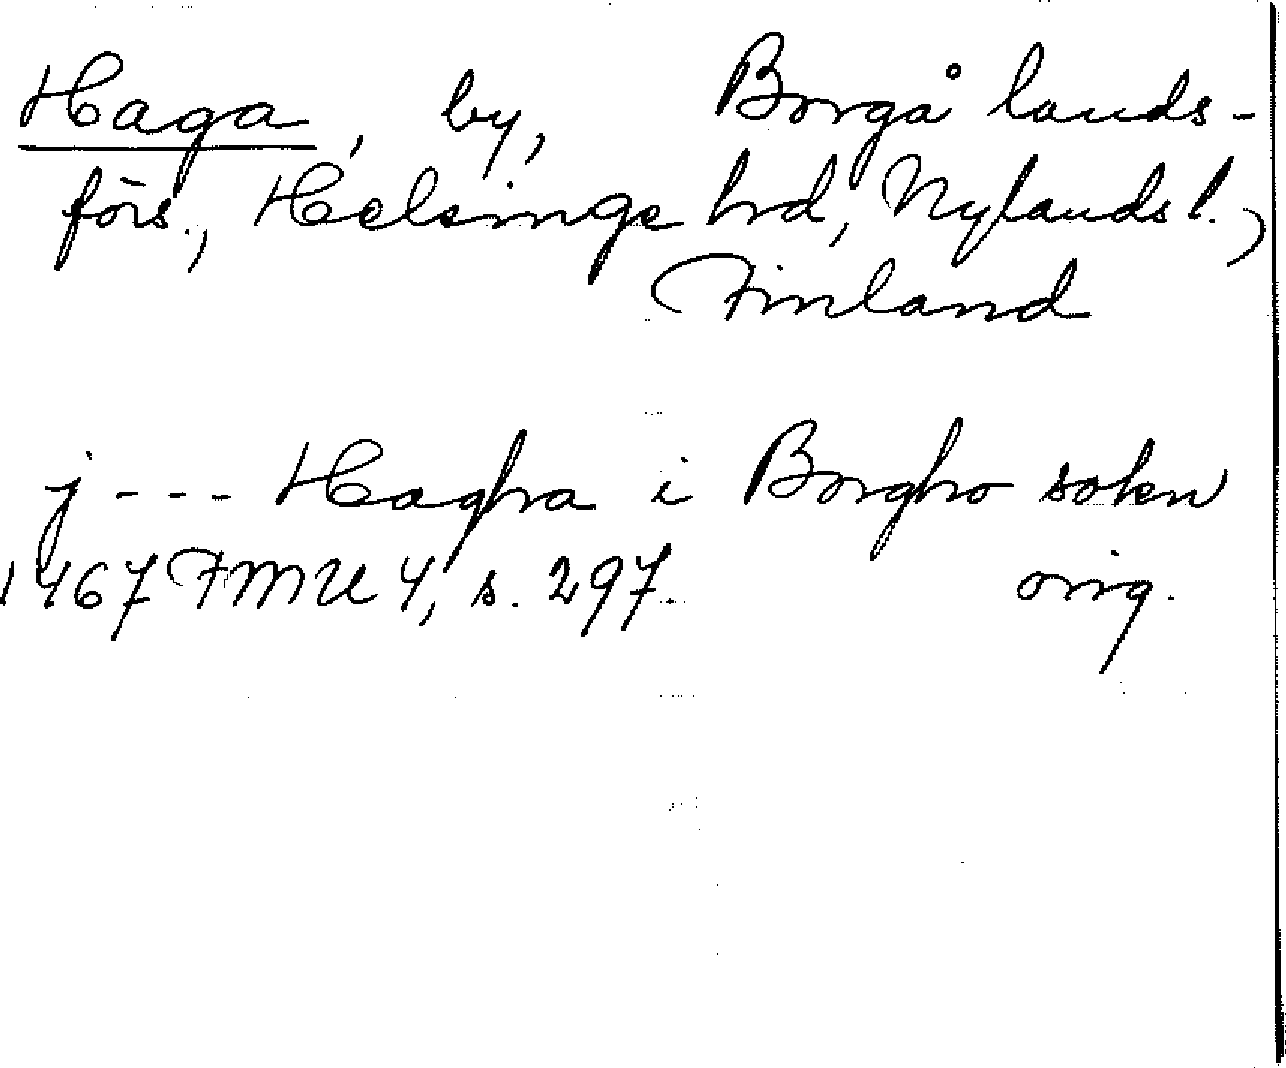 Haga, by, Borgå lands-
förs., Helsinge hrd, Nylands l.,
Finland
j --- Hagha i Borgho sokn
1467 FMU 4, s. 297. orig.